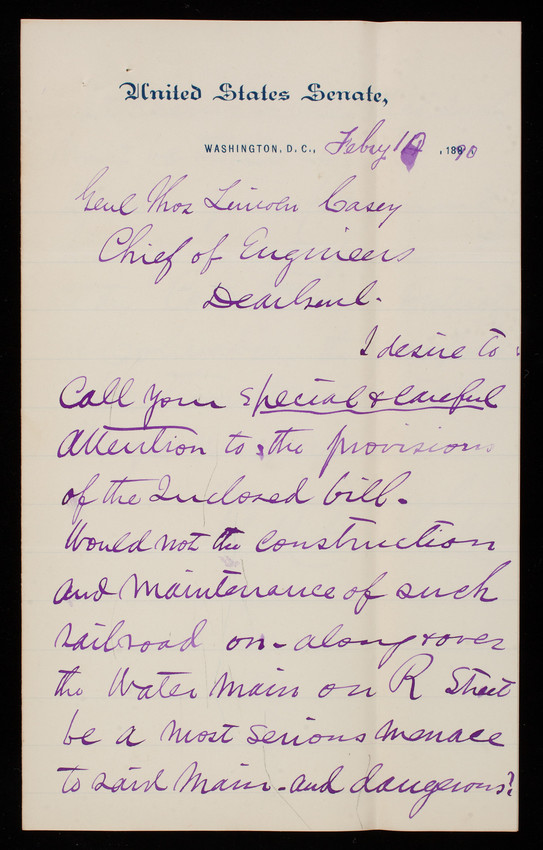 United States Senate,
WASHINGTON, D.C., Feby 10, 1890
Genl Thos Lincoln Casey
Chief of Engineers
Dear Genl.
I desire to
Call your special & careful
attention to the provisions
of the Inclosed bill.
Would not the construction
and maintenance of such
railroad on - along & over
the Water Main on R Street
be a most serious menace
to said Main - and dangerous?